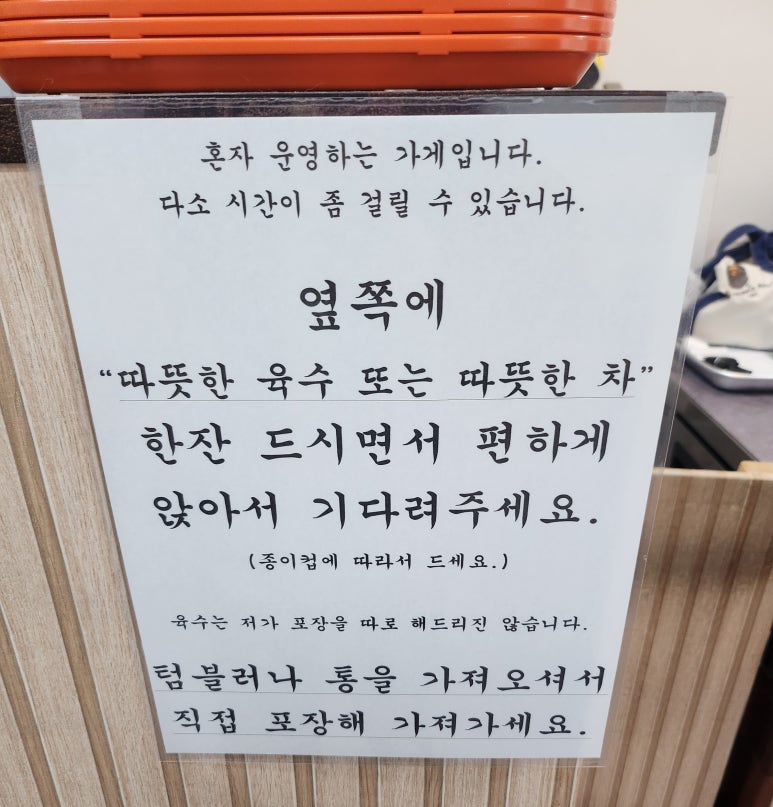 혼자 운영하는 가게입니다.
다소 시간이 좀 걸릴 수 있습니다.
옆쪽에
“따뜻한 육수 또는 따뜻한 차”
한잔 드시면서 편하게
앉아서 기다려주세요.
(종이컵에 따라서 드세요.)
육수는 저가 포장을 따로 해드리진 않습니다.
텀블러나 통을 가져오셔서
직접 포장해 가져가세요.